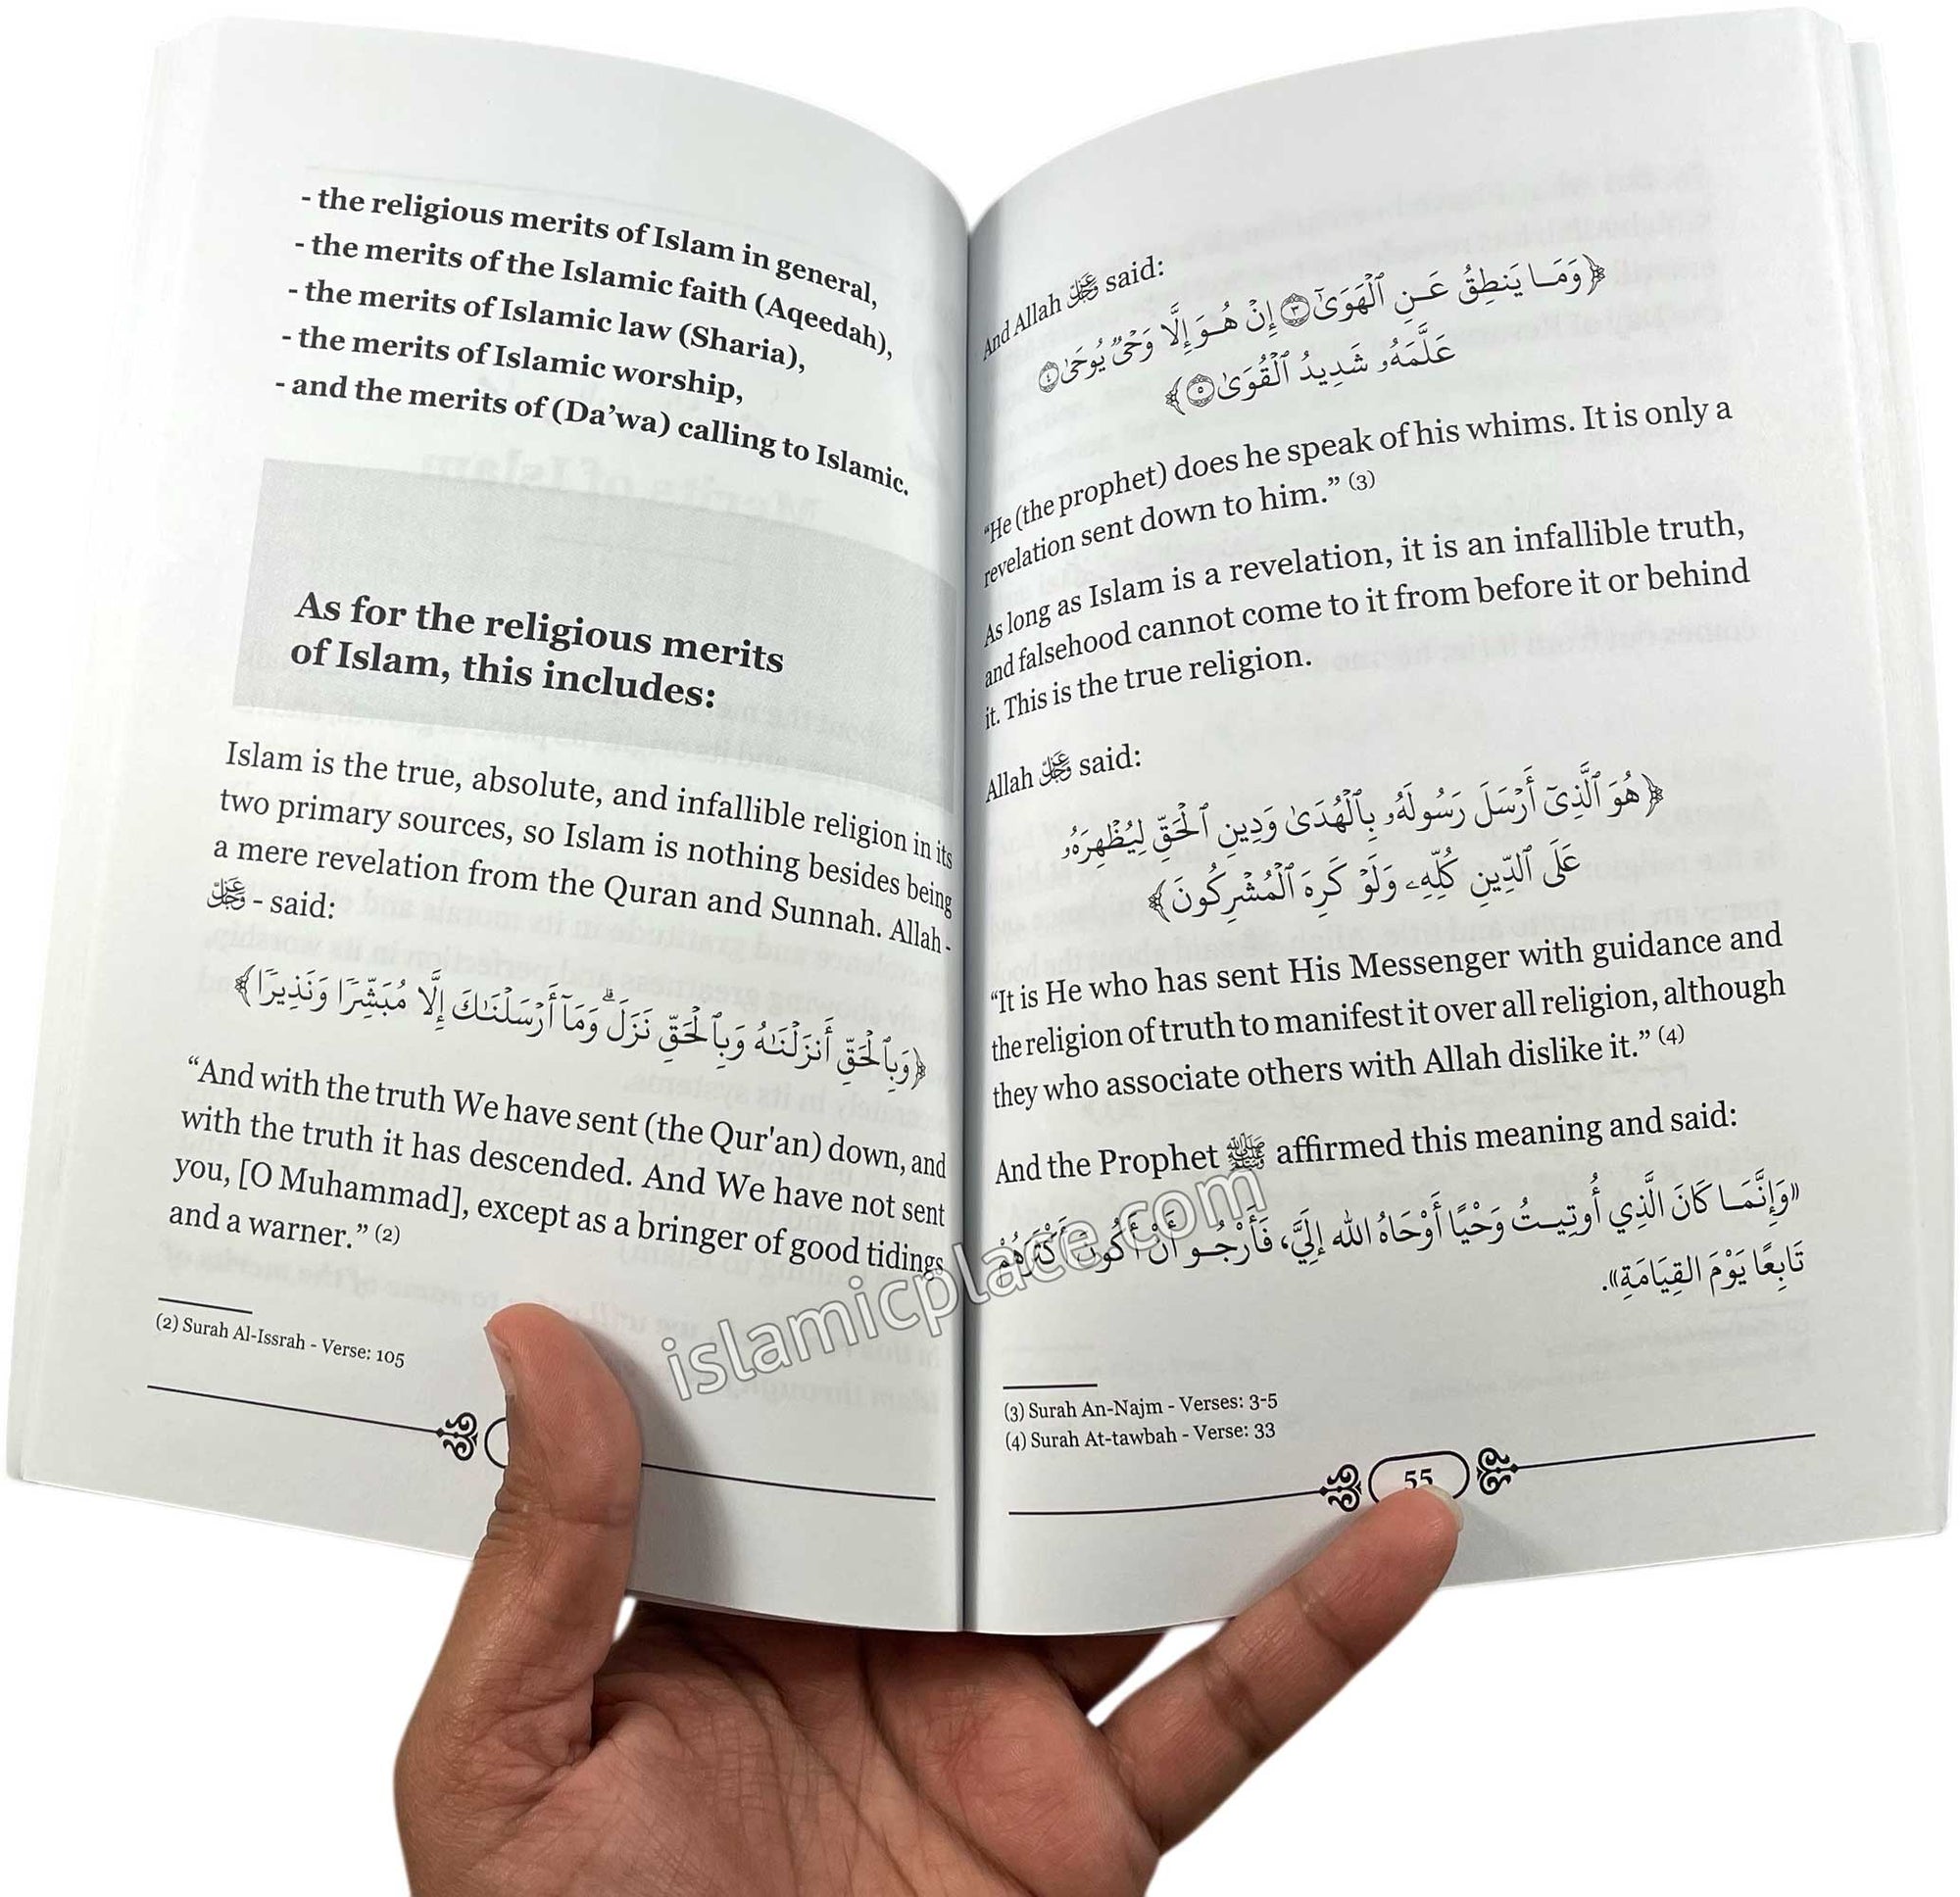 - the religious merits of Islam in general,
- the merits of the Islamic faith (Aqeedah),
- the merits of Islamic law (Sharia),
- the merits of Islamic worship,
- and the merits of (Da’wa) calling to Islamic.
As for the religious merits
of Islam, this includes:
Islam is the true, absolute, and infallible religion in its
two primary sources, so Islam is nothing besides being
a mere revelation from the Quran and Sunnah. Allah -
عَزَّوَجَلَّ - said:
﴿وَبِٱلۡحَقِّ أَنزَلۡنَـٰهُ وَبِٱلۡحَقِّ نَزَلَۗ وَمَآ أَرۡسَلۡنَـٰكَ إِلَّا مُبَشِّرٗا وَنَذِيرٗا﴾
“And with the truth We have sent (the Qur'an) down, and
with the truth it has descended. And We have not sent
you, [O Muhammad], except as a bringer of good tidings
and a warner.” (2)
(2) Surah Al-Issrah - Verse: 105
And Allah عَزَّوَجَلَّ said:
﴿وَمَا يَنطِقُ عَنِ ٱلۡهَوَىٰٓ ٣ إِنۡ هُوَ إِلَّا وَحۡيٞ يُوحَىٰ ٤
عَلَّمَهُۥ شَدِيدُ ٱلۡقُوَىٰ ٥﴾
“He (the prophet) does he speak of his whims. It is only a
revelation sent down to him.” (3)
As long as Islam is a revelation, it is an infallible truth,
and falsehood cannot come to it from before it or behind
it. This is the true religion.
Allah عَزَّوَجَلَّ said:
﴿هُوَ ٱلَّذِيٓ أَرۡسَلَ رَسُولَهُۥ بِٱلۡهُدَىٰ وَدِينِ ٱلۡحَقِّ لِيُظۡهِرَهُۥ
عَلَى ٱلدِّينِ كُلِّهِۦ وَلَوۡ كَرِهَ ٱلۡمُشۡرِكُونَ﴾
“It is He who has sent His Messenger with guidance and
the religion of truth to manifest it over all religion, although
they who associate others with Allah dislike it.” (4)
And the Prophet ﷺ affirmed this meaning and said:
«وَإِنَّمَا كَانَ الَّذِي أُوتِيتُ وَحْيًا أَوْحَاهُ الله إِلَيَّ، فَأَرْجُو أَنْ أَكُونَ أَكْثَرَهُمْ
تَابِعًا يَوْمَ القِيَامَةِ».
(3) Surah An-Najm - Verses: 3-5
(4) Surah At-tawbah - Verse: 33
55
islamicplace.com